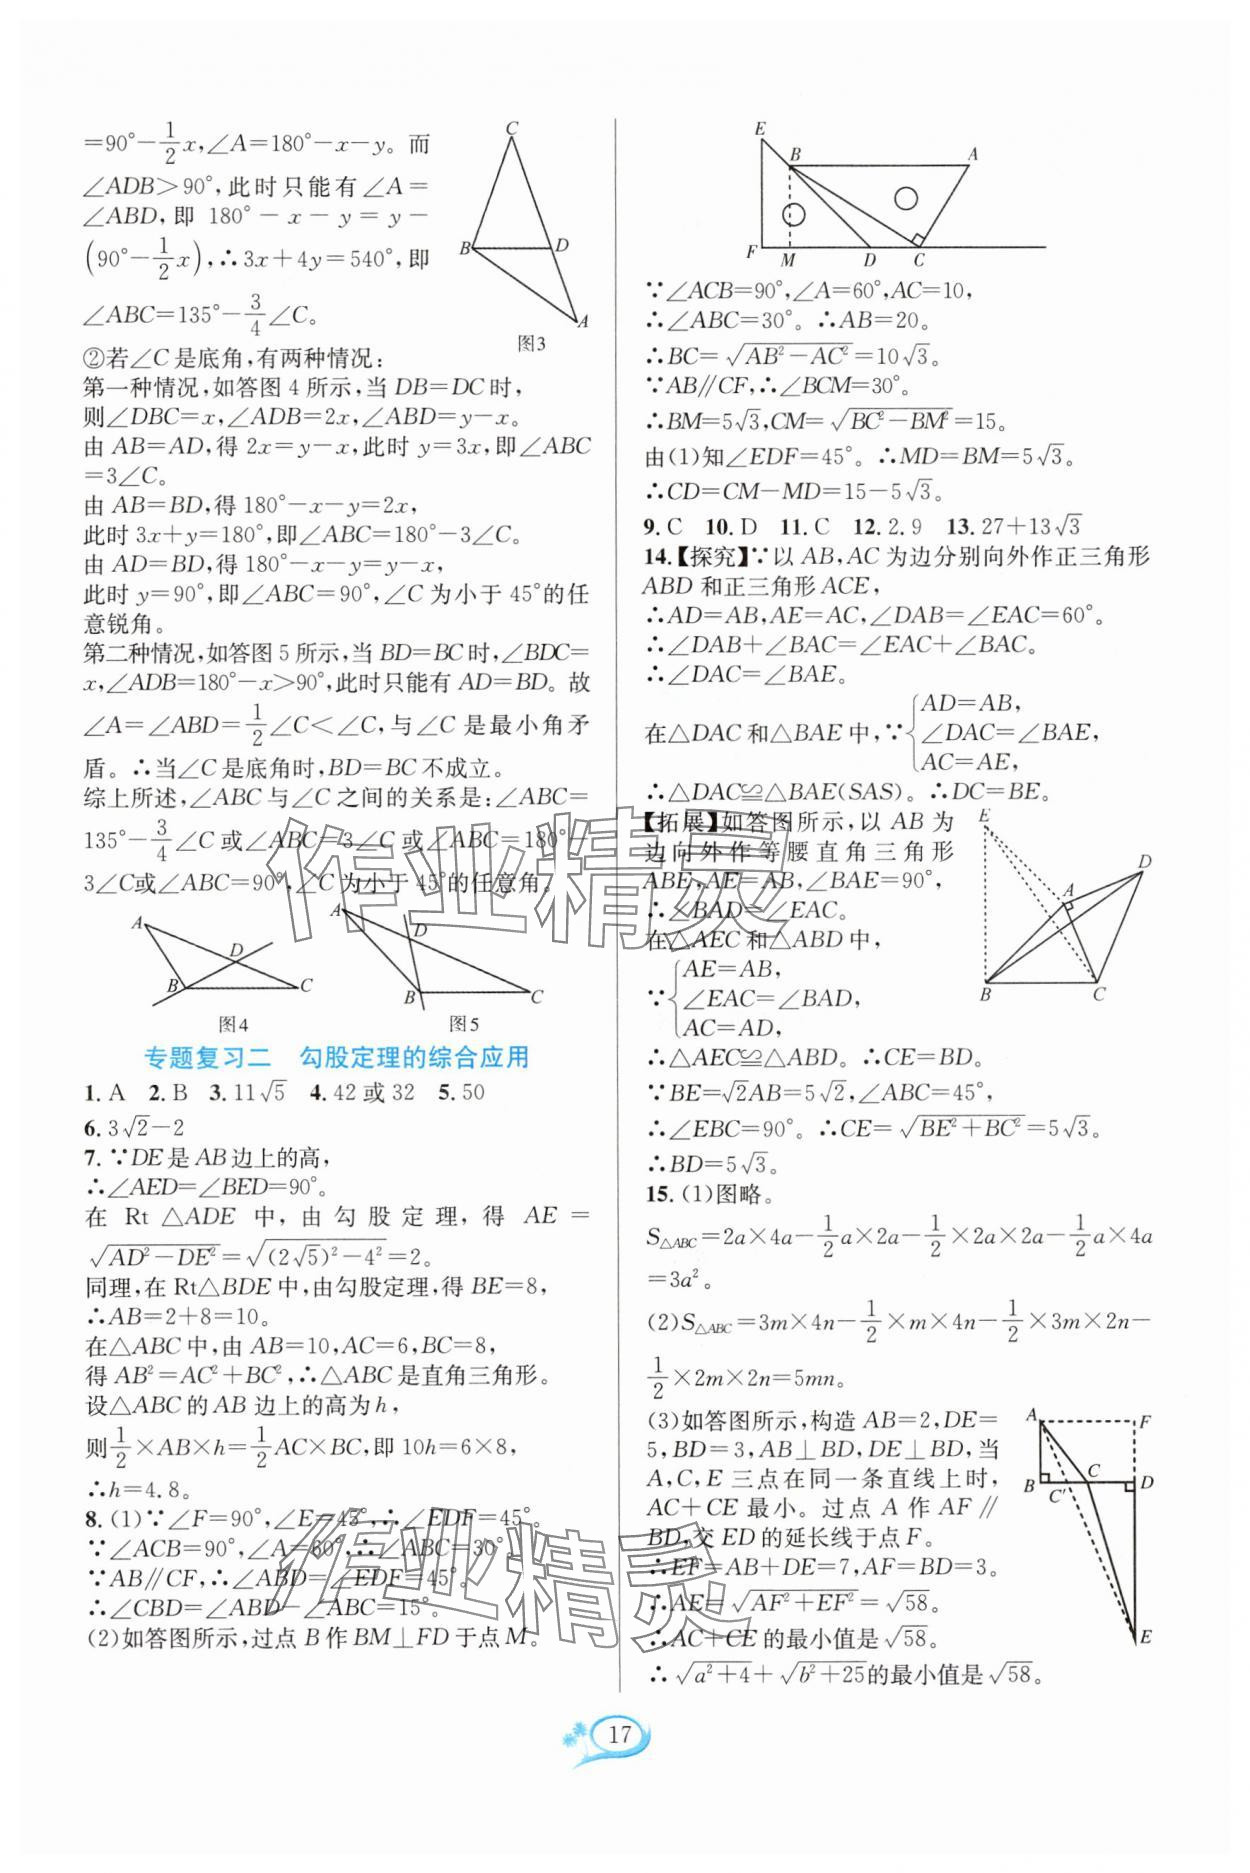 =90°-\frac{1}{2}x,∠A=180°-x-y。而
∠ADB>90°,此时只能有∠A=
∠ABD,即 180°-x-y=y-
(90°-\frac{1}{2}x),∴3x+4y=540°,即
∠ABC=135°-\frac{3}{4}∠C。
C
B
D
A
图3
②若∠C是底角,有两种情况:
第一种情况,如答图4所示,当DB=DC时,
则∠DBC=x,∠ADB=2x,∠ABD=y-x。
由AB=AD,得2x=y-x,此时y=3x,即∠ABC
=3∠C。
由AB=BD,得180°-x-y=2x,
此时3x+y=180°,即∠ABC=180°-3∠C。
由AD=BD,得180°-x-y=y-x,
此时y=90°,即∠ABC=90°,∠C为小于45°的任
意锐角。
第二种情况,如答图5所示,当BD=BC时,∠BDC=
x,∠ADB=180°-x>90°,此时只能有AD=BD。故
∠A=∠ABD=\frac{1}{2}∠C<∠C,与∠C是最小角矛
盾。∴当∠C是底角时,BD=BC不成立。
综上所述,∠ABC与∠C之间的关系是:∠ABC=
135°-\frac{3}{4}∠C或∠ABC=3∠C或∠ABC=180°-
3∠C或∠ABC=90°,∠C为小于45°的任意角。
A
D
B
C
图4
A
D
B
C
图5
专题复习二 勾股定理的综合应用
1. A 2. B 3. 11√5 4. 42或32 5. 50
6. 3√2-2
7. ∵DE是AB边上的高,
∴∠AED=∠BED=90°。
在Rt△ADE中,由勾股定理,得AE=
√(AD²-DE²)=√((2√5)²-4²)=2。
同理,在Rt△BDE中,由勾股定理,得BE=8,
∴AB=2+8=10。
在△ABC中,由AB=10,AC=6,BC=8,
得AB²=AC²+BC²,∴△ABC是直角三角形。
设△ABC的AB边上的高为h,
则\frac{1}{2}×AB×h=\frac{1}{2}AC×BC,即10h=6×8,
∴h=4.8。
8. (1)∵∠F=90°,∠E=45°,∴∠EDF=45°。
∵∠ACB=90°,∠A=60°,∴∠ABC=30°。
∵AB∥CF,∴∠ABD=∠EDF=45°。
∴∠CBD=∠ABD-∠ABC=15°。
(2)如答图所示,过点B作BM⊥FD于点M。
E
B
A
F
M
D
C
∵∠ACB=90°,∠A=60°,AC=10,
∴∠ABC=30°。∴AB=20。
∴BC=√(AB²-AC²)=10√3。
∵AB∥CF,∴∠BCM=30°。
∴BM=5√3,CM=√(BC²-BM²)=15。
由(1)知∠EDF=45°。∴MD=BM=5√3。
∴CD=CM-MD=15-5√3。
9. C 10. D 11. C 12. 2.9 13. 27+13√3
14.【探究】∵以AB,AC为边分别向外作正三角形
ABD和正三角形ACE,
∴AD=AB,AE=AC,∠DAB=∠EAC=60°。
∴∠DAB+∠BAC=∠EAC+∠BAC。
∴∠DAC=∠BAE。
在△DAC和△BAE中,∵{AD=AB,
∠DAC=∠BAE,
AC=AE,
∴△DAC≌△BAE(SAS)。∴DC=BE。
【拓展】如答图所示,以AB为
边向外作等腰直角三角形
ABE,AE=AB,∠BAE=90°,
∴∠BAD=∠EAC。
在△AEC和△ABD中,
∵{AE=AB,
∠EAC=∠BAD,
AC=AD,
E
D
A
B
C
∴△AEC≌△ABD。∴CE=BD。
∵BE=√2AB=5√2,∠ABC=45°,
∴∠EBC=90°。∴CE=√(BE²+BC²)=5√3。
∴BD=5√3。
15. (1)图略。
S△ABC=2a×4a-\frac{1}{2}a×2a-\frac{1}{2}×2a×2a-\frac{1}{2}a×4a
=3a²。
(2)S△ABC=3m×4n-\frac{1}{2}×m×4n-\frac{1}{2}×3m×2n-
\frac{1}{2}×2m×2n=5mn。
(3)如答图所示,构造AB=2,DE=
5,BD=3,AB⊥BD,DE⊥BD,当
A,C,E三点在同一条直线上时,
AC+CE最小。过点A作AF∥
BD,交ED的延长线于点F。
∴EF=AB+DE=7,AF=BD=3。
∴AE=√(AF²+EF²)=√58。
∴AC+CE的最小值是√58。
∴√(a²+4)+√(b²+25)的最小值是√58。
A
F
B
C′
C
D
E
17
作业精灵
作业精灵